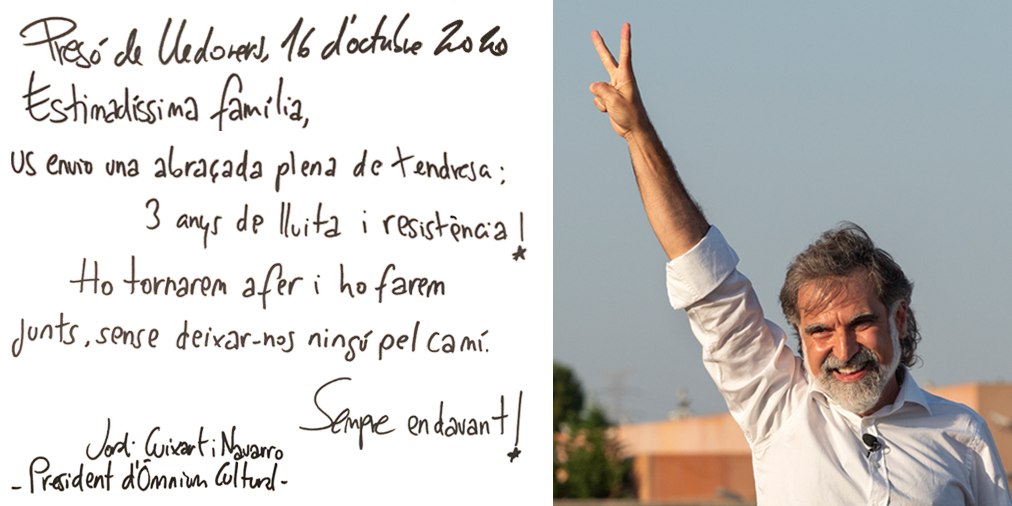 Presó de Lledoners, 16 d'octubre 2020
Estimadíssima família,
us envio una abraçada plena de tendresa:
3 anys de lluita i resistència!
Ho tornarem a fer i ho farem
junts, sense deixar-nos ningú pel camí.
Sempre endavant!
Jordi Cuixart i Navarro
- President d'Òmnium Cultural -